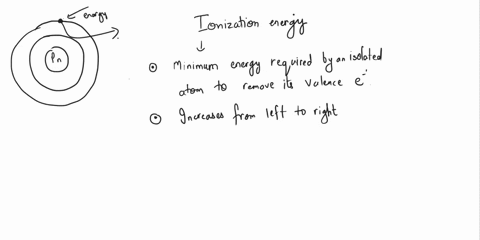 energy
Ionization energy
Pn
Minimum energy required by an isolated
atom to remove its valence e⁻.
Increases from left to right